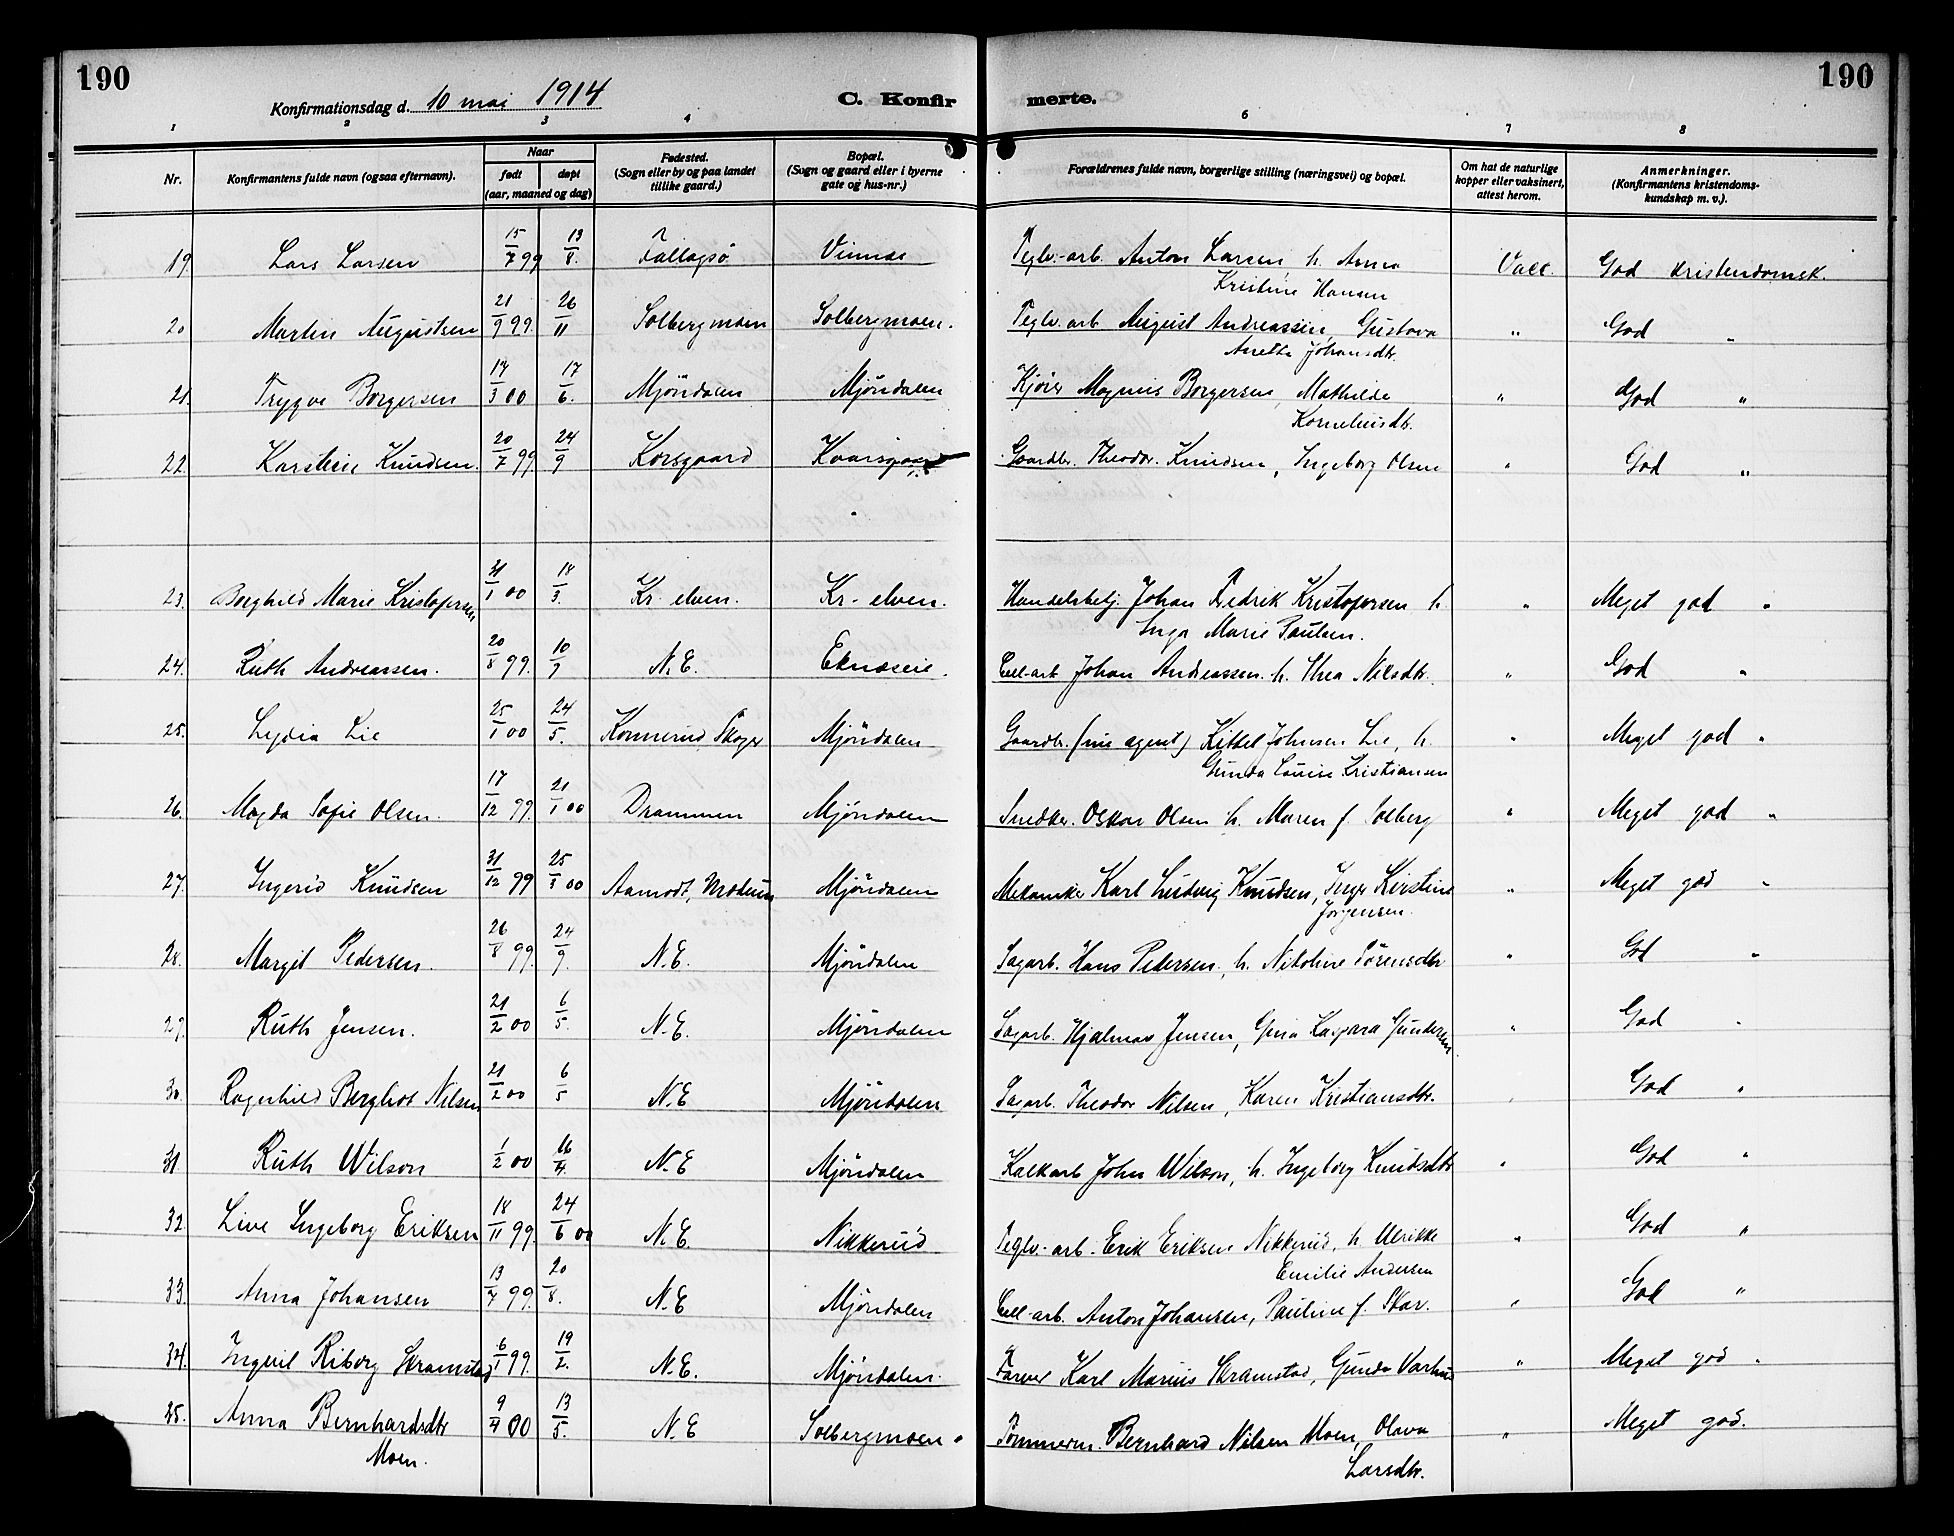 190
190
Konfirmationsdag d. 10 mai 1914
C. Konfir
merte.
1 2 3 4 6 7 8
Nr.
Konfirmantens fulde navn (ogsaa efternavn).
Naar
født
døpt
(aar, maaned og dag)
Fødested.
(Sogn eller by og paa landet
tillike gaard.)
Bopæl.
(Sogn og gaard eller i byerne
gate og hus-nr.)
Forældrenes fulde navn, borgerlige stilling (næringsvei) og bopæl.
Om hat de naturlige
kopper eller vaksinert,
attest herom.
Anmerkninger.
(Konfirmantens kristendoms-
kundskap m. v.).
19. Lars Larsen 15/7 99 13/8. Fallagsö Vinnæs Teglv.-arb. Anton Larsen, h. Anna Vacc. God kristendomsk.
Kristine Hansen
20 Martin Augustsen 21/9 99. 26/11 Solbergmoen Solbergmoen. Teglv. arb August Andreassen, Gustava " God "
Anetta Johansdtr.
21. Trygve Borgersen 14/3 00 17/6. Mjöndalen Mjöndalen Kjörer Magnus Borgersen, Mathilde " God "
Korneliusdtr.
22. Karstein Knudsen. 20/7 99 24/9 Korsgaard Gaardbr. Theodor Knudsen, Ingeborg Olsen " God "
23. Borghild Marie Kristofersen 31/1 00 18/3. Kr. elven. Kr.- elven. Handelsbetj. Johan Fredrik Kristofersen h. " Meget god "
Inga Marie Paulsen.
24. Ruth Andreassen. 20/8 99. 10/9 N.E. Eknæseie. Cell-arb Johan Andreassen h. Thea Nilsdtr. " God "
25. Lydia Lie 25/1 00 24/5. Konnerud, Skoger Mjöndalen Gaardbr. (nu agent) Kittel Johnsen Lie, h. " Meget god "
Gunda Louise Kristiansen
26. Magda Sofie Olsen. 17/12 99. 21/1 00 Drammen Mjöndalen Snedker. Oskar Olsen h. Maren f. Solberg " Meget god "
27. Ingerid Knudsen 31/12 99 25/3 00 Aamodt, Modum Mjöndalen Mekaniker Karl Ludvig Knudsen, Inga Kirstine " Meget god "
Jörgensen.
28. Margit Pedersen. 26/8 99. 24/9. N.E. Mjöndalen Sagarb. Hans Pedersen, h. Nikoline Sörensdtr " God "
29. Ruth Jensen. 21/2 00 6/5. N.E. Mjöndalen Sagarb. Hjalmar Jensen, Gina Kaspara Gundersen. " God "
30. Ragnhild Bergliot Nilsen 21/2 00 6/5 N.E Mjöndalen Sagarb. Theodor Nilsen, Karen Kristiansdtr. " God "
31 Ruth Wilson 1/2 00 16/4. N.E Mjöndalen Kalkarb John Wilson, h. Ingeborg Knudsdtr " God "
32. Live Ingeborg Eriksen 18/11 99. 24/6 00 N.E. Nikkerud Teglv.-arb. Erik Eriksen Nikkerud, h. Ulrikke " God "
Emilie Andersen
33. Anna Johansen 13/7 99. 20/8. N.E Mjöndalen Cell-arb. Anton Johansen, Pauline f. Skar. " God "
34. Ingril Riborg Skramstad 6/1 99. 19/2. N.E. Mjöndalen. Farver Karl Marius Skramstad, Gunda " Meget god "
35. Anna Bernhardsdtr 9/4 00 13/5. N.E Solbergmoen. Tömmerm. Bernhard Nilsen Moen, Olava " Meget god.
Moen.
Larsdtr.